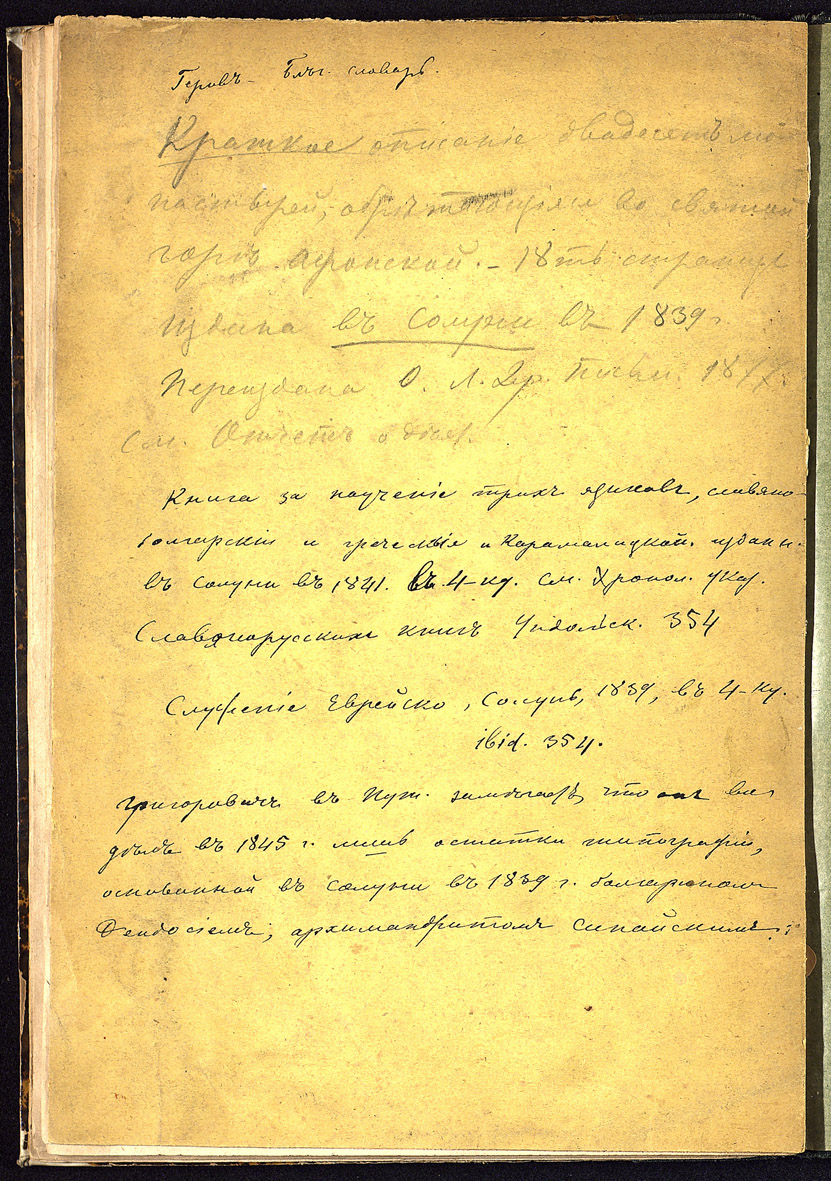 Геровъ – Блъг. словарь.
Краткое описаніе двадесеть мо-
настырей, обрѣтающіяся во святой
горѣ Афонской. – 18ть страницъ
Издана въ Солуни въ 1839 г.
Переиздана О. Л. Др. Письм.
См. Отчетъ о дѣят.
Книга за научніе трихъ языковъ, славяно-
болгарскій и греческія и Карамалицкой. издан.
въ Солуни въ 1841. въ 4-ку. См. Хронол. Указ.
Славянорусскихъ книгъ Ундольск. 354
Служеніе Еврейско, Солунь, 1839, въ 4-ку.
ibid. 354.
Григоровичъ въ Пут. замѣчаетъ, что онъ ви-
дѣлъ въ 1845 г. лишь остатки типографіи,
основанной въ Солуни въ 1839 г. болгариномъ
Феодосіемъ, архимандритомъ Синайскимъ.